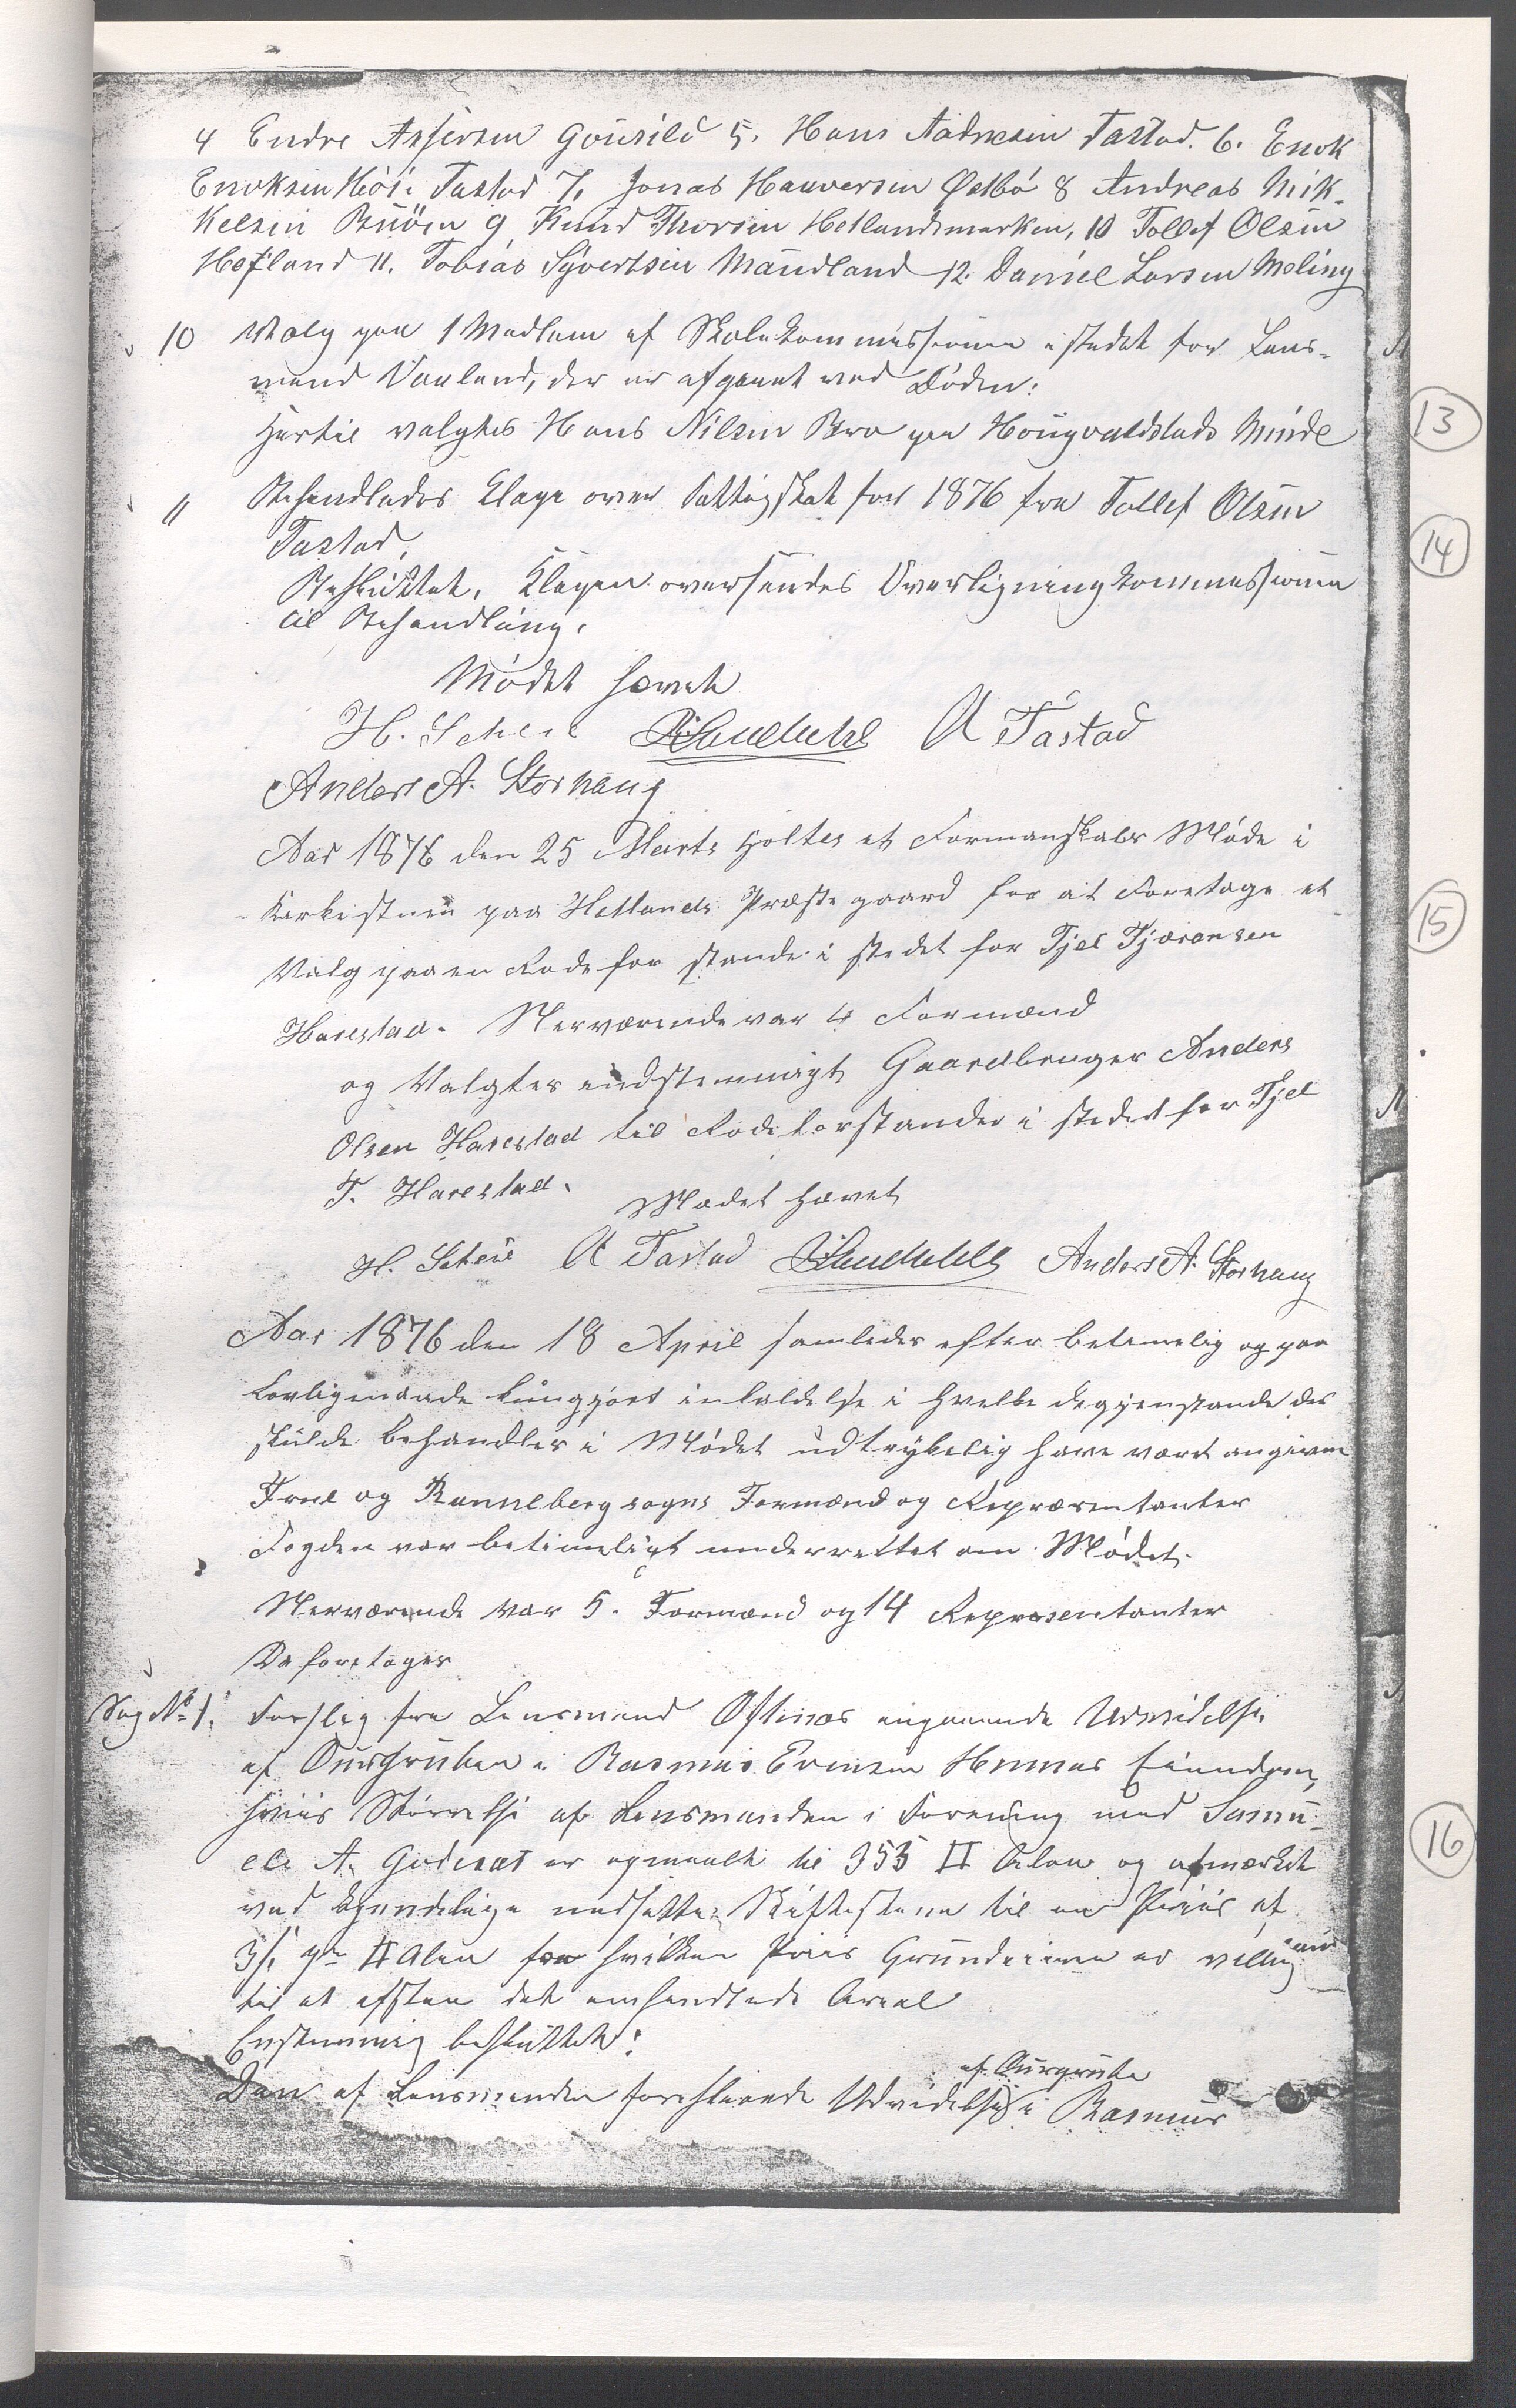 4 Endre Assersen Gousild 5. Hans Aadnesen Tastad. 6. Enok
Enoksen Høie Tastad 7. Jonas Hauversen Østbø 8 Andreas Mik-
kelsen Buøen 9 Knud Thorsen Hetlandsmarken, 10 Tollef Olsen
Hetland 11. Tobias Syvertsen Maudland 12. Daniel Larsen Meling
10 Valg paa 1 Medlem af Skolekommissionen istedet for Lens-
mand Vauland, der er afgaaet ved Døden:
Hertil valgtes Hans Nilsen Bro paa Hougvaldstads Minde
11 Behandledes Klage over Fattigskat for 1876 fra Tollef Olsen
Tastad,
Besluttet, Klagen oversendes Overligningskommissionen
til Behandling.
Mødet hævet
H. Scheie A Tastad
Anders A. Storhaug
Aar 1876 den 25 Marts holtes et Formanskabs Møde i
Kirkestuen paa Hetlands Præstegaard for at Foretage et
Valg paa en Rodeforstander i stedet for Tjel Tjøransen
Harestad. Nerværende var 4 Formænd
og Valgtes endstemmigt Gaardbruger Anders
Olsen Harestad til Rodeforstander i stedet for Tjel
T. Harestad.
Mødet hævet
H. Scheie A Tastad Anders A. Storhaug
Aar 1876 den 18 April samledes efter betimelig og paa
Lovligmaade kungjort inkaldelse i hvelke de gjenstande der
skulde behandles i Mødet udtrykelig have været angivne
Frue og Randeberg sogns Formænd og Repræsentanter
Fogden var betimeligt underrettet om Mødet.
Nerværende var 5. Formænd og 14 Representanter
Da foretoges
Sag No 1. Forslag fra Lensmand Østinas angaaende Udvidelse
af Ourgruben i Rasmus Evensen Hennes Eiendom,
hvis Størrelse af Lensmanden i Forening med Samu-
el A. Godeset er opmaalt til 355 □ Alen og afmærket
ved kjendelige nedsatte Skiftestene til en Priis af
3 s. pr □ Alen for hvilken Priis Grundeieren er villig
til at afstaa det omhandlede Areal
Enstemmig besluttet:
af Ourgrube
Den af Lensmanden foreslaaede Udvidelse i Rasmus
13
14
15
16